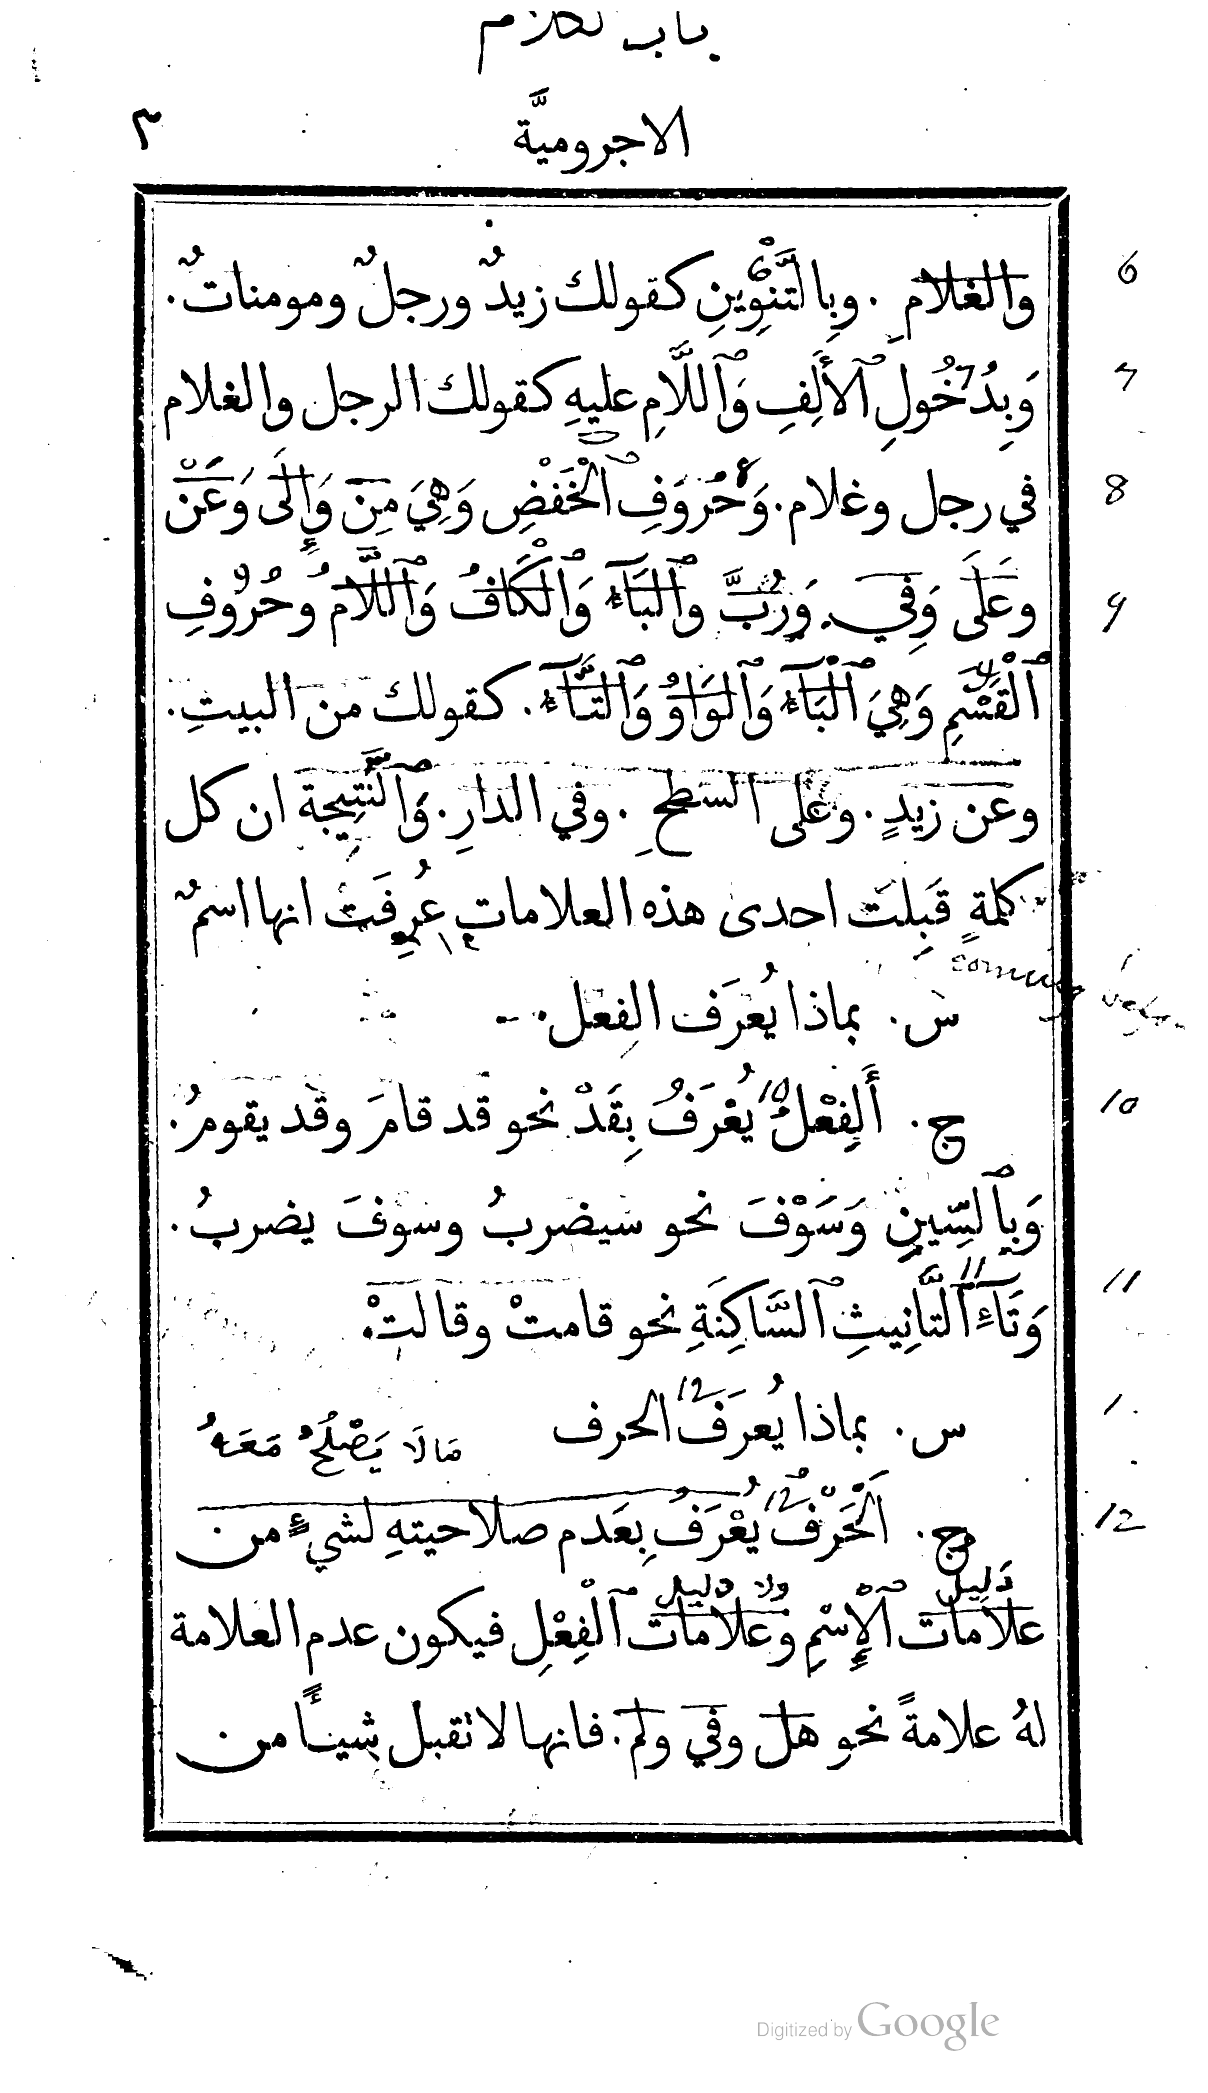 باب لكلام
الاجروميَّة ٣
والغلام . وبِالتَّنْوِينِ كقولك زيدٌ ورجلٌ ومومناتٌ. 6
وَبِدُخُولِ ٱلأَلِفِ وَٱللَّامِ عليهِ كقولك الرجل والغلام 7
في رجل وغلام. وَحُرُوَفِ ٱلْخَفْضِ وَهِيَ مِنَ وَإِلَى وَعَنْ 8
وعَلَى وَفِي. وَرُبَّ وٱلبَآءُ وَٱلْكَافُ وَٱللَّامُ وحُرُوفِ 9
ٱلْقَسَمِ وَهِيَ ٱلْبَآءُ وَٱلوَاوُ وَٱلتَّآءُ. كقولك من البيتِ.
وعن زيدٍ. وعلى السطحِ . وفي الدارِ. وَٱلنَّتِيجة ان كل
كلمةٍ قَبِلَت احدى هذه العلاماتِ عُرِفَت انها اسمٌ
coming
س. بماذا يُعْرَف الفِعْل.
ج. أَلفِعْلُ يُعْرَفُ بِقَدْ نحو قد قامَ وقد يقومُ. 10
وَبِٱلسِّينِ وَسَوْفَ نحو سيضربُ وسوفَ يضربُ.
وَتَآءِ ٱلتَّانِيثِ ٱلسَّاكِنَةِ نحو قامتْ وقالتْ. 11
س. بماذا يُعرَفُ الحرف مَا لَا يَصْلُحُ مَعَهُ
ج. اَلْحَرْفُ يُعْرَفُ بِعَدم صلاحيتهِ لشيءٍ من 12
دَلِيل ولا دليل
علامات ٱلإِسْمِ وعلامات ٱلْفِعْلِ فيكون عدم العلامة
لهُ علامةً نحو هل وفي ولم. فانها لا تقبل شيئًا من
Digitized by Google